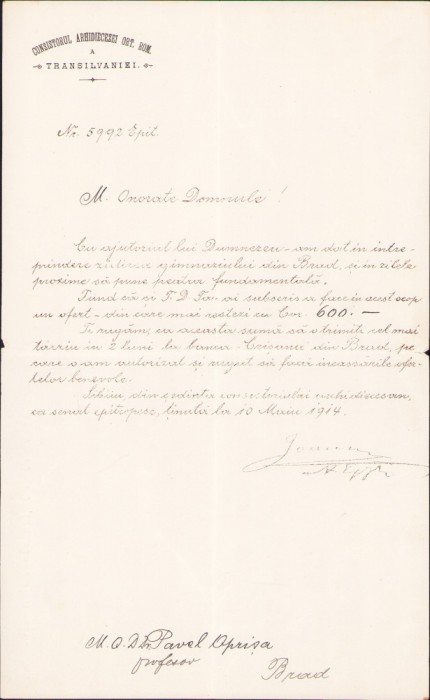 CONSISTORUL ARHIDIECEZEI ORT. ROM.
A
TRANSILVANIEI.
No. 5992 Epit.
M. Onorate Domnule!
Cu ajutoriul lui Dumnezeu am dat în intre-
prindere zidirea gimnaziului din Brad, și în zilele
proxime să pune peatra fundamentală.
Fiind că și T. D. Ta. ai subscris a face în acest scop
un ofert – din care mai restezi cu Cor. 600.—
Te rugăm, ca aceasta sumă să o trimiti cel mai
târziu în 2 luni la banca Crișana din Brad, pe
care o am autorizat și rugat să facă incassările ofer-
telor benevole.
Sibiiu, din ședința consistoriului arhidiecesan,
ca senat epitropesc, ținută la 10 Maiu 1914.
Ioan
M. O. D. Dr. Pavel Oprișa
profesor
Brad